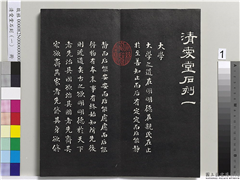 清愛堂石刻一
大學
大學之道在明明德在親民在止
於至善知止而后有定定而后能靜
靜而后能安安而后能慮慮而后能得
物有本末事有終始知所先後
則近道矣古之欲明明德於天下
者先治其國欲治其國者先齊其
家欲齊其家者先修其身欲修
1